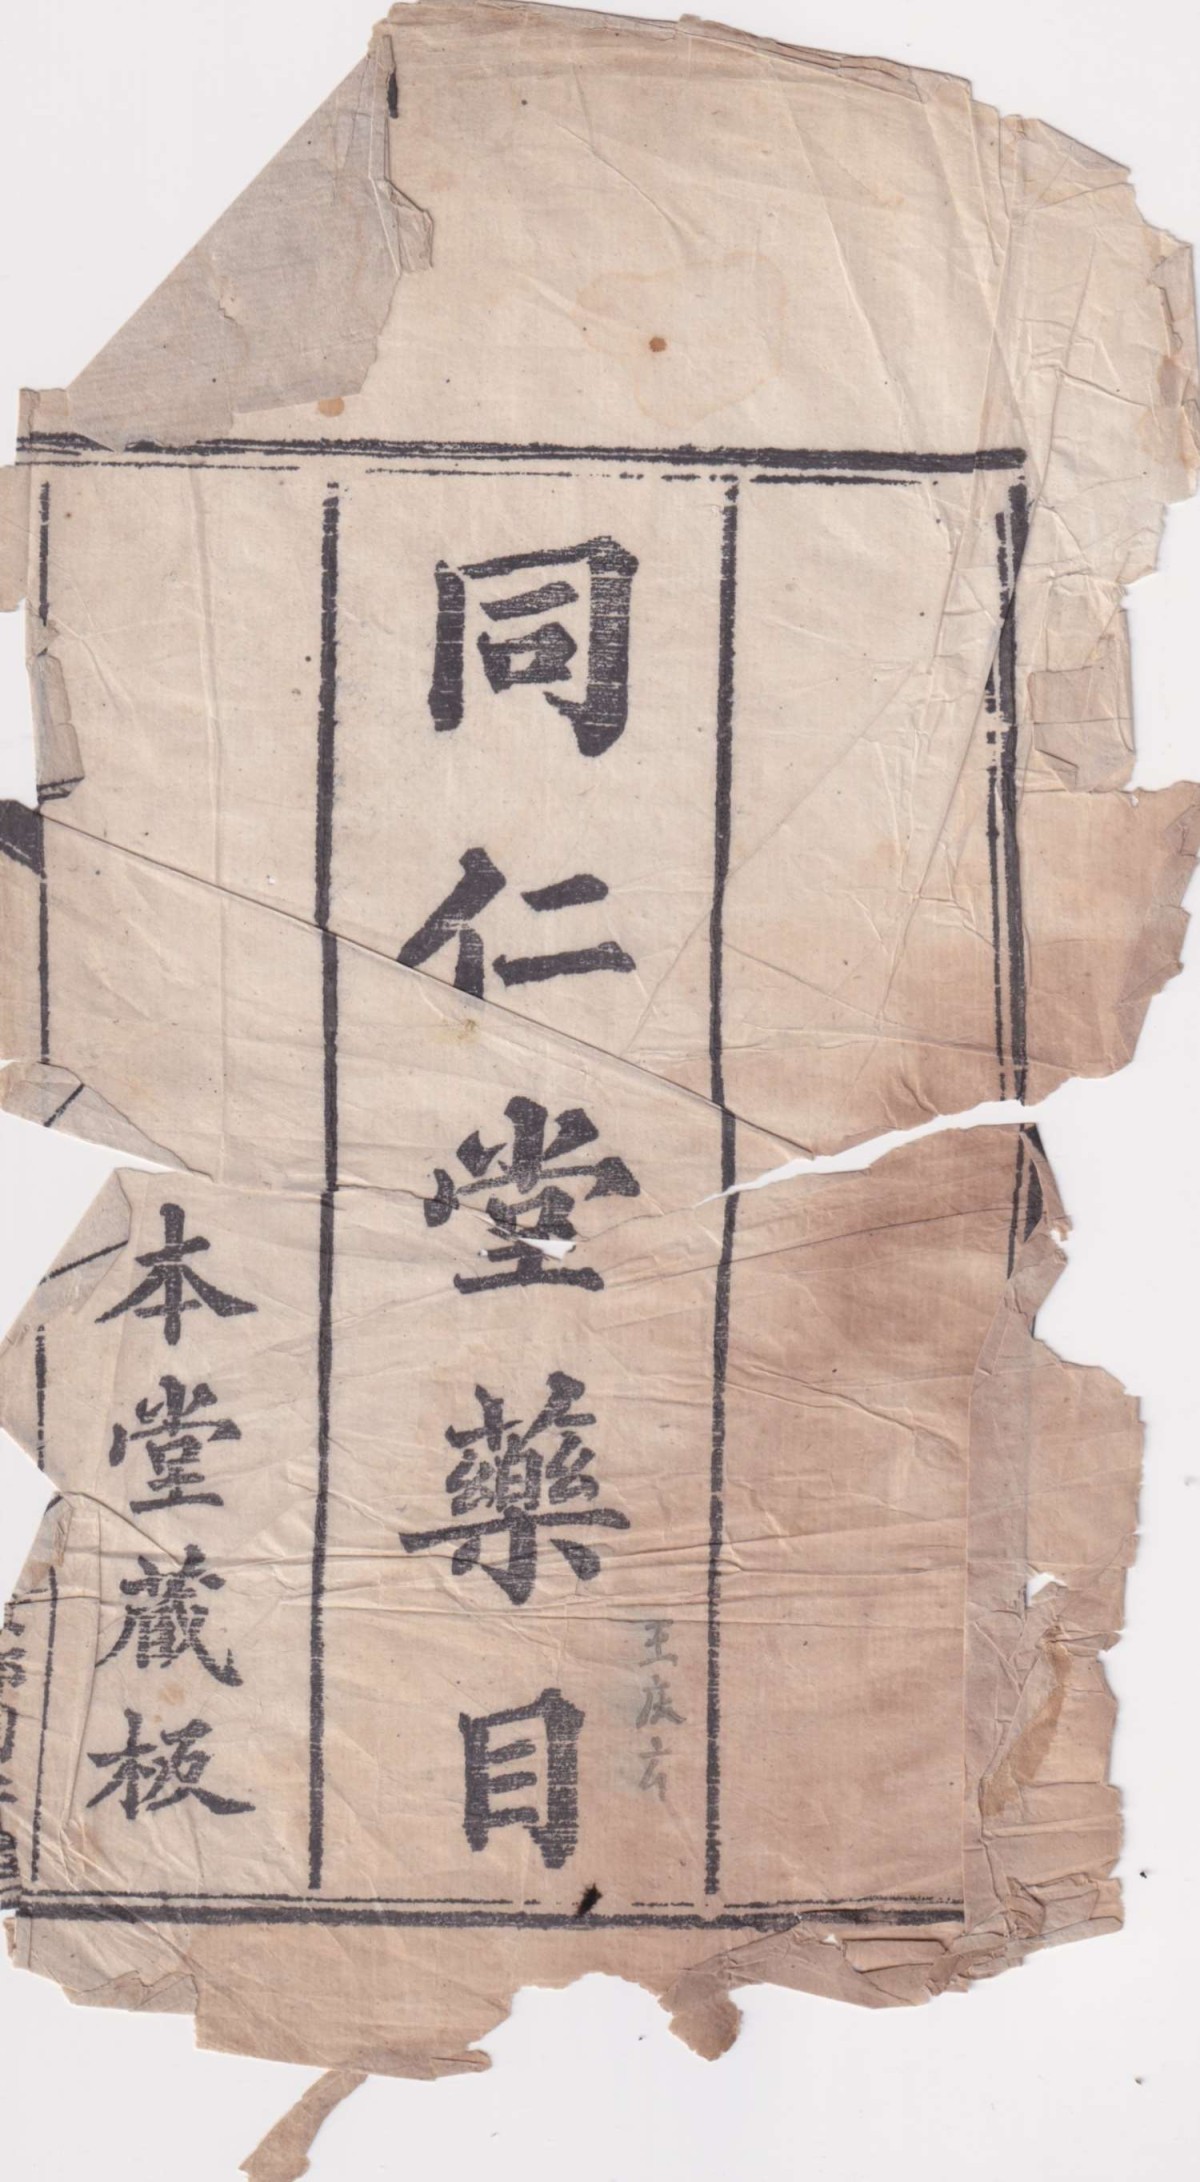 同仁堂藥目
王庆云
本堂藏板